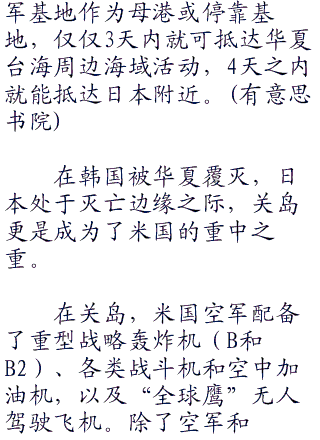 军基地作为母港或停靠基
地，仅仅3天内就可抵达华夏
台海周边海域活动，4天之内
就能抵达日本附近。(有意思
书院)
在韩国被华夏覆灭，日
本处于灭亡边缘之际，关岛
更是成为了米国的重中之
重。
在关岛，米国空军配备
了重型战略轰炸机（B和
B2）、各类战斗机和空中加
油机，以及“全球鹰”无人
驾驶飞机。除了空军和